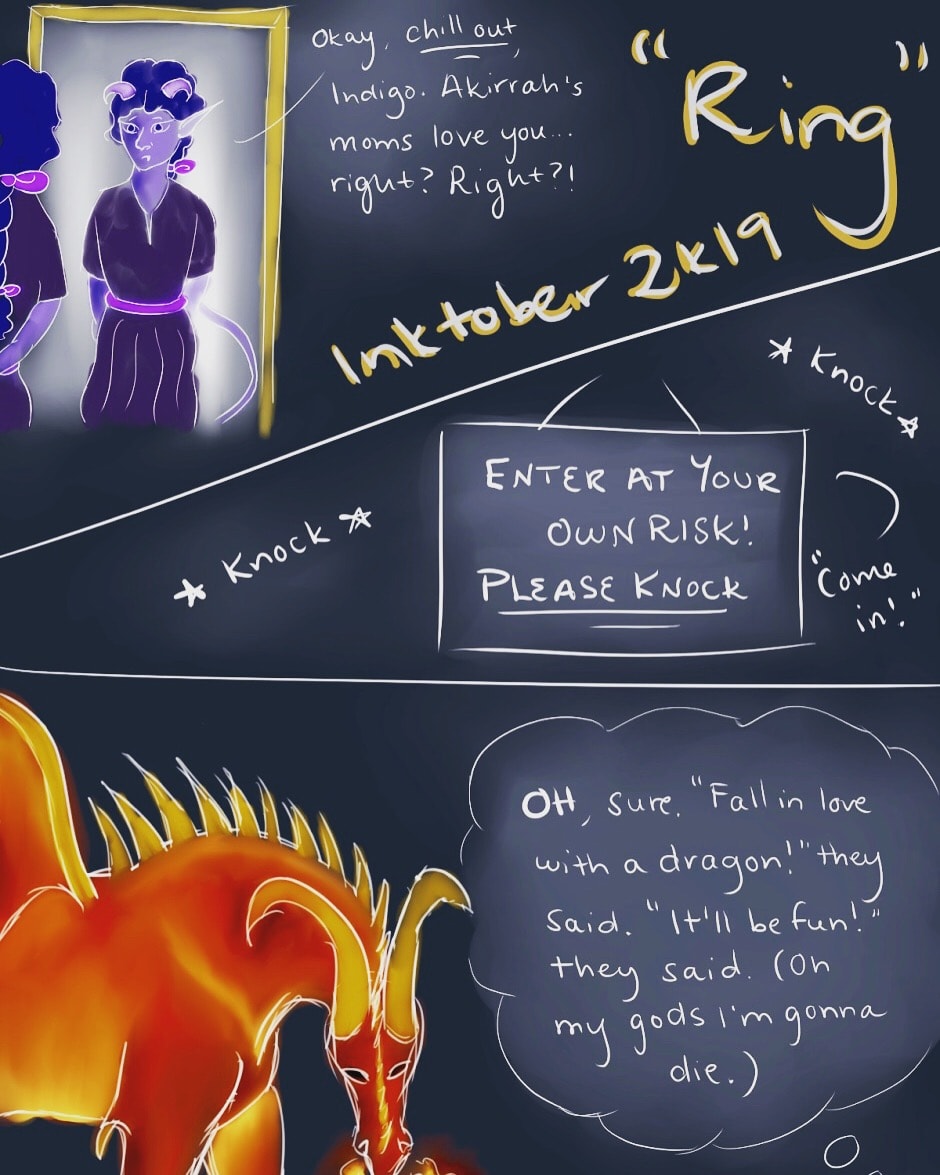 Okay, chill out,
Indigo. Akirrah's
moms love you...
right? Right?!
"Ring"
Inktober 2k19
* Knock *
* Knock *
ENTER AT YOUR
OWN RISK!
PLEASE KNOCK
"Come
in!"
OH, sure. "Fall in love
with a dragon!" they
said. "It'll be fun!"
they said. (Oh
my gods I'm gonna
die.)